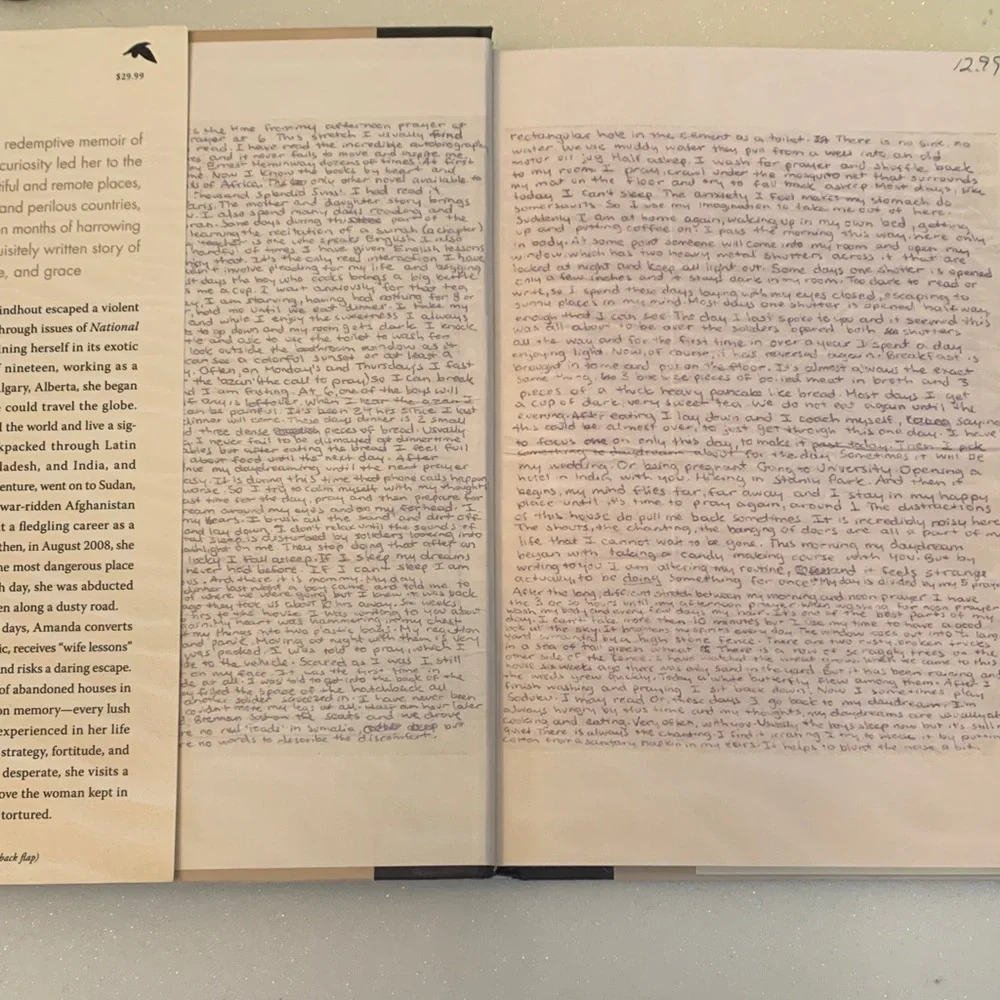 $29.99
redemptive memoir of
curiosity led her to the
iful and remote places,
and perilous countries,
n months of harrowing
uisitely written story of
e, and grace
indhout escaped a violent
hrough issues of National
ining herself in its exotic
f nineteen, working as a
lgary, Alberta, she began
could travel the globe.
d the world and live a sig-
kpacked through Latin
ladesh, and India, and
enture, went on to Sudan,
war-ridden Afghanistan
t a fledgling career as a
then, in August 2008, she
he most dangerous place
h day, she was abducted
en along a dusty road.
days, Amanda converts
ic, receives "wife lessons"
nd risks a daring escape.
of abandoned houses in
on memory—every lush
experienced in her life
strategy, fortitude, and
desperate, she visits a
ove the woman kept in
tortured.
back flap)
is the time from my afternoon prayer at
rayer at 6. This stretch I usually
read. I have read the incredible autobiography
es and it never fails to move and inspire me
Ernest Hemingway dozens of times. At first
me. Now I know the books by heart and
s of Africa. The only other novel available to
Thousand Splendid Suns. I had read it
aris. The mother and daughter story brings
u. I also spend many days reading and
ran. Some days during this part of the
learning the recitation of a surah (a chapter)
teacher is one who speaks English. I also
handful of times I have given English lessons
njoy that. It's the only real interaction I have
esn't involve pleading for my life and begging
st days the boy who cooks brings a big bottle
s me a cup. I wait anxiously for that tea
y. I am starving, having had nothing for 8 or
hold me until we eat dinner. I take my
and while I enjoy the sweetness I always
s to up down and my room gets dark. I knock
tle and ask to use the toilet to wash for
look outside the bathroom window as it
can see a colorful sunset or at least a
y. Often, on Monday's and Thursday's I fast
the 'azan' (the call to pray) so I can break
I am fasting. At 6, one of the boys will
if any is leftover. When I hear the azan I
can be painful. It's been 24 hrs since I last
dinner will come. These days dinner is 2 small
d three dense pieces of bread. Usually
I never fail to be dismayed at dinnertime
ables but after eating the bread I feel full
about food until the next day. After
inue my daydreaming until the next prayer
easy. It is during this time that phone calls happen
worse. So I try to calm myself with my thoughts
ast time for the day, pray and then prepare for
ream around my eyes and on my forhead. I
my tears. I brush all the sand and dirt off
and lay down. I don't relax until the sounds of
l. Sleep is disturbed by soliders looking into
ashlight on me. They stop doing that after an
lucky I fall asleep. If I sleep my dreams
never had before. If I can't sleep I am
us. And there it is mommy. My day.
dinner last night a boy came and told me to
of where we were going but I knew it was back
age they took us about 2 hrs away. Six weeks
hrs to the house I was writing to you about
again. My heart was hammering in my chest
ut my things into two plastic bags. My reaction
and panic. Moving at night with them is very
was packed I was told to pray, which I
de to the vehicle. Scared as I was I still
on my face. It was the first time I
de at all. I was told to get into the back of the
y filled the space of the hatchback all
another solider squeezed in. I have never been
couldn't move my legs at all. Half an hour later
d Brennan sat on the seats and we drove
re no real 'roads' in Somalia, our
re no words to describe the discomfort.
12.99
rectangular hole in the cement as a toilet. There is no sink, no
water. We use muddy water they put from a well into an old
motor oil jug. Half asleep, I wash for prayer and shuffle back
to my room. I pray, crawl under the mosquito net that surrounds
my mat on the floor and try to fall back asleep. Most days, like
today I can't sleep. The anxiety I feel makes my stomach do
somersaults. So I use my imagination to take me out of here.
Suddenly I am at home again, waking up in my own bed, getting
up and putting coffee on. I pass the morning this way, here only
in body. At some point someone will come into my room and open my
window, which has two heavy metal shutters across it that are
locked at night and keep all light out. Some days one shutter is opened
only a few inches and it stays dark in my room. Too dark to read or
write, so I spend these days laying with my eyes closed, escaping to
sunny places in my mind. Most days one shutter is opened half way,
enough that I can see. The day I last spoke to you and it seemed this
was all about to be over the soliders opened both shutters
all the way and for the first time in over a year I spent a day
enjoying light. Now, of course, it has reversed again. Breakfast is
brought in to me and put on the floor. It's almost always the exact
same thing, pieces of boiled meat in broth and 3
pieces of a thick heavy pancake like bread. Most days I get
a cup of dark, very sweet tea. We do not eat again until the
evening. After eating I lay down and I coach myself, saying
this could be almost over, to just get through this one day. I have
to focus one on only this day, to make it past today. Then I pick
something to daydream about for the day. Sometimes it will be
my wedding. Or being pregnant. Going to University. Opening a
hotel in India with you. Hiking in Stanly Park. And then it
begins, my mind flies far, far away and I stay in my happy
place until it's time to pray again, around 1. The distructions
of this house do pull me back sometimes. It is incredibly noisy here
The shouts, the chanting, the banging of doors are all a part of my
life that I cannot wait to be gone. This morning my daydream
began with taking a candy making course with you. But by
writing to you I am altering my routine, and it feels strange
actually, to be doing something for once. My day is divided by my 5 prayers
After the long, difficult stretch between my morning and noon prayer I have
the 3 or so hours until my afternoon prayer. When washing for noon prayer
wash my body and every few days my hair. It's one of the better parts of my
day. I can't take more then 10 minutes but I use my time to have a good
look at the sky. It brightens my spirits every day. The window looks out into a large
yard surrounded by a high stone fence. There are two rusty, broken vehicles
in a sea of tall green wheat. There is a row of scraggly trees on the
other side of the fence. I have watched the wheat grow. When we came to this
house six weeks ago there was only sand in the yard. But it has been raining and
the weeds grew quickly. Today a white butterfly flew among them. After I
finish washing and praying I sit back down. Now I sometimes play
Soduku. I may read or, these days I go back to my daydream. I'm
always hungry by this time and my thoughts, my daydreams are usually of
cooking and eating. Very often, with you. Usually the boys sleep now but it's still
quiet. There is always the chanting. I find it irrating. I try to mask it by putting
cotton from a sanitary napkin in my ears. It helps to blunt the noise a bit.